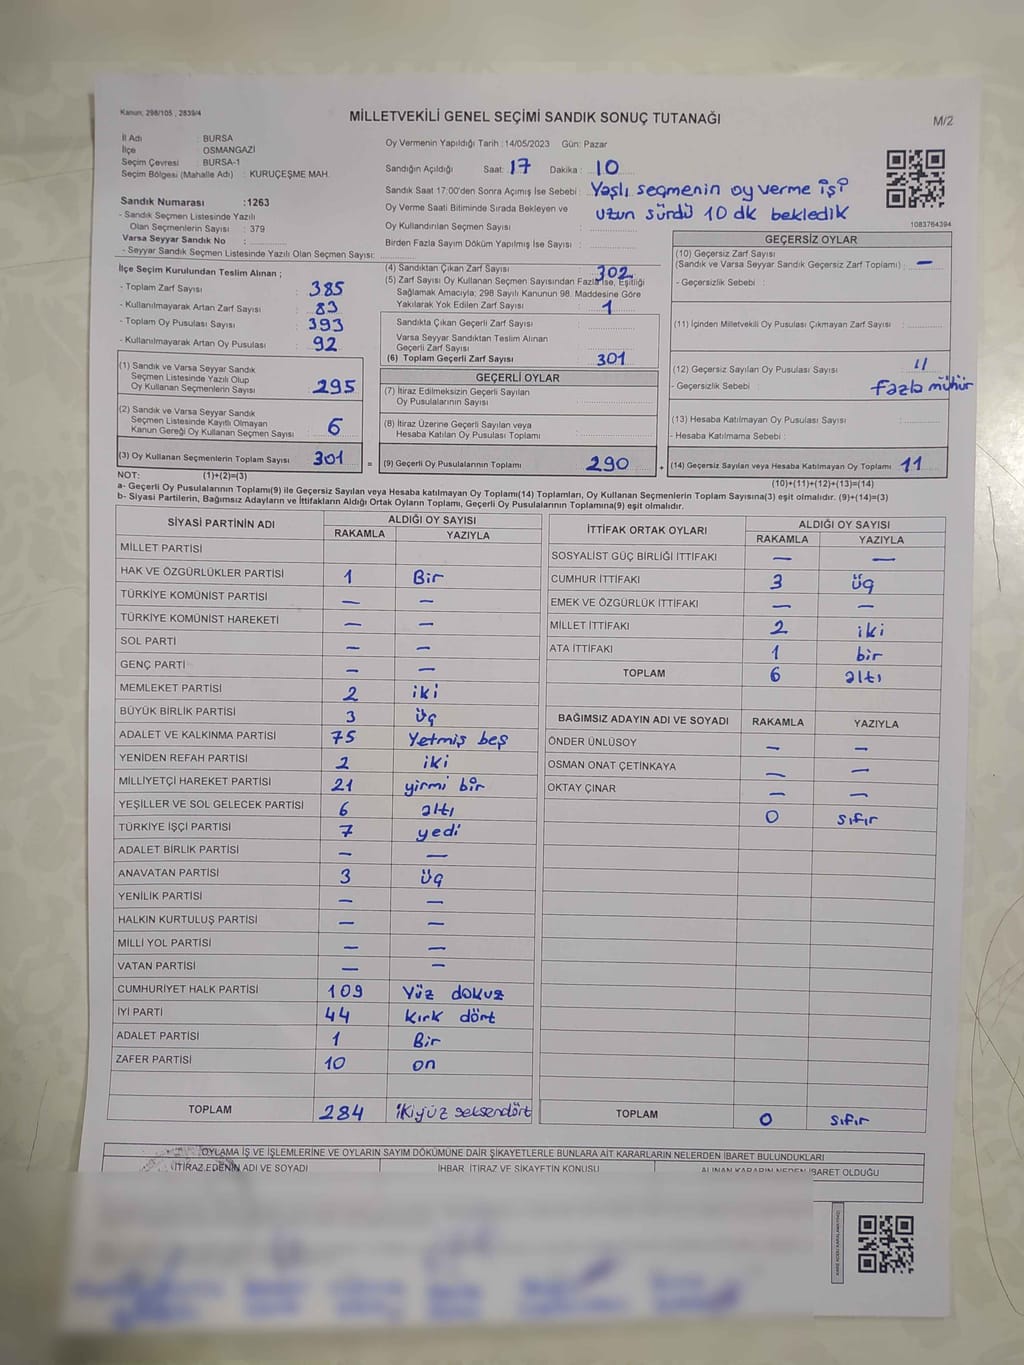 Kanun; 298/105 , 2839/4
MİLLETVEKİLİ GENEL SEÇİMİ SANDIK SONUÇ TUTANAĞI
M/2
İl Adı : BURSA
İlçe OSMANGAZİ
Seçim Çevresi : BURSA-1
Seçim Bölgesi (Mahalle Adı) : KURUÇEŞME MAH.
Oy Vermenin Yapıldığı Tarih : 14/05/2023 Gün: Pazar
Sandığın Açıldığı Saat: 17 Dakika : 10
Sandık Saat 17:00'den Sonra Açımış İse Sebebi : Yaşlı seçmenin oy verme işi
Oy Verme Saati Bitiminde Sırada Bekleyen ve uzun sürdü 10 dk bekledik
Oy Kullandırılan Seçmen Sayısı :
Birden Fazla Sayım Döküm Yapılmış İse Sayısı :
1083764394
Sandık Numarası :1263
- Sandık Seçmen Listesinde Yazılı
Olan Seçmenlerin Sayısı : 379
Varsa Seyyar Sandık No :
- Seyyar Sandık Seçmen Listesinde Yazılı Olan Seçmen Sayısı:
İlçe Seçim Kurulundan Teslim Alınan ;
- Toplam Zarf Sayısı : 385
- Kullanılmayarak Artan Zarf Sayısı : 83
- Toplam Oy Pusulası Sayısı : 393
- Kullanılmayarak Artan Oy Pusulası : 92
(1) Sandık ve Varsa Seyyar Sandık
Seçmen Listesinde Yazılı Olup
Oy Kullanan Seçmenlerin Sayısı : 295
(2) Sandık ve Varsa Seyyar Sandık
Seçmen Listesinde Kayıtlı Olmayan
Kanun Gereği Oy Kullanan Seçmen Sayısı : 6
(3) Oy Kullanan Seçmenlerin Toplam Sayısı : 301 =
(4) Sandıktan Çıkan Zarf Sayısı : 302
(5) Zarf Sayısı Oy Kullanan Seçmen Sayısından Fazla İse, Eşitliği
Sağlamak Amacıyla; 298 Sayılı Kanunun 98. Maddesine Göre
Yakılarak Yok Edilen Zarf Sayısı : 1
Sandıkta Çıkan Geçerli Zarf Sayısı :
Varsa Seyyar Sandıktan Teslim Alınan
Geçerli Zarf Sayısı :
(6) Toplam Geçerli Zarf Sayısı : 301
GEÇERLİ OYLAR
(7) İtiraz Edilmeksizin Geçerli Sayılan
Oy Pusulalarının Sayısı :
(8) İtiraz Üzerine Geçerli Sayılan veya
Hesaba Katılan Oy Pusulası Toplamı :
(9) Geçerli Oy Pusulalarının Toplamı : 290 +
GEÇERSİZ OYLAR
(10) Geçersiz Zarf Sayısı
(Sandık ve Varsa Seyyar Sandık Geçersiz Zarf Toplamı) : —
- Geçersizlik Sebebi :
(11) İçinden Milletvekili Oy Pusulası Çıkmayan Zarf Sayısı :
(12) Geçersiz Sayılan Oy Pusulası Sayısı : 11
- Geçersizlik Sebebi : fazla mühür
(13) Hesaba Katılmayan Oy Pusulası Sayısı :
- Hesaba Katılmama Sebebi :
(14) Geçersiz Sayılan veya Hesaba Katılmayan Oy Toplamı : 11
NOT: (1)+(2)=(3) (10)+(11)+(12)+(13)=(14)
a- Geçerli Oy Pusulaları Toplamı(9) ile Geçersiz Sayılan veya Hesaba katılmayan Oy Toplamı(14) Toplamları, Oy Kullanan Seçmenlerin Toplam Sayısına(3) eşit olmalıdır. (9)+(14)=(3)
b- Siyasi Partilerin, Bağımsız Adayların ve İttifakların Aldığı Ortak Oyların Toplamı, Geçerli Oy Pusulalarının Toplamına(9) eşit olmalıdır.
SİYASİ PARTİNİN ADI ALDIĞI OY SAYISI
RAKAMLA YAZIYLA
MİLLET PARTİSİ
HAK VE ÖZGÜRLÜKLER PARTİSİ 1 Bir
TÜRKİYE KOMÜNİST PARTİSİ — —
TÜRKİYE KOMÜNİST HAREKETİ — —
SOL PARTİ — —
GENÇ PARTİ — —
MEMLEKET PARTİSİ 2 iki
BÜYÜK BİRLİK PARTİSİ 3 üç
ADALET VE KALKINMA PARTİSİ 75 Yetmiş beş
YENİDEN REFAH PARTİSİ 2 iki
MİLLİYETÇİ HAREKET PARTİSİ 21 yirmi bir
YEŞİLLER VE SOL GELECEK PARTİSİ 6 altı
TÜRKİYE İŞÇİ PARTİSİ 7 yedi
ADALET BİRLİK PARTİSİ — —
ANAVATAN PARTİSİ 3 üç
YENİLİK PARTİSİ — —
HALKIN KURTULUŞ PARTİSİ — —
MİLLİ YOL PARTİSİ — —
VATAN PARTİSİ — —
CUMHURİYET HALK PARTİSİ 109 Yüz dokuz
İYİ PARTİ 44 Kırk dört
ADALET PARTİSİ 1 Bir
ZAFER PARTİSİ 10 on
TOPLAM 284 ikiyüz seksendört
İTTİFAK ORTAK OYLARI ALDIĞI OY SAYISI
RAKAMLA YAZIYLA
SOSYALİST GÜÇ BİRLİĞİ İTTİFAKI — —
CUMHUR İTTİFAKI 3 üç
EMEK VE ÖZGÜRLÜK İTTİFAKI — —
MİLLET İTTİFAKI 2 iki
ATA İTTİFAKI 1 bir
TOPLAM 6 altı
BAĞIMSIZ ADAYIN ADI VE SOYADI RAKAMLA YAZIYLA
ÖNDER ÜNLÜSOY — —
OSMAN ONAT ÇETİNKAYA — —
OKTAY ÇINAR — —
0 sıfır
TOPLAM 0 sıfır
OYLAMA İŞ VE İŞLEMLERİNE VE OYLARIN SAYIM DÖKÜMÜNE DAİR ŞİKAYETLERLE BUNLARA AİT KARARLARIN NELERDEN İBARET BULUNDUKLARI
İTİRAZ EDENİN ADI VE SOYADI İHBAR, İTİRAZ VE ŞİKAYETİN KONUSU ALINAN KARARIN NEDEN İBARET OLDUĞU